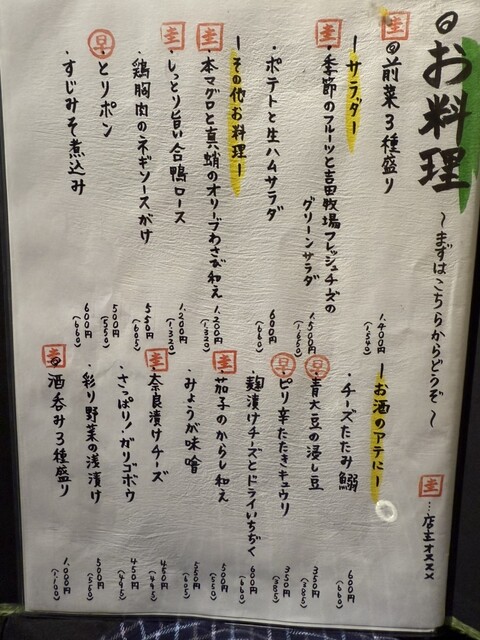 ◎お料理 〜まずはこちらからどうぞ〜
圭 …店主オススメ
圭 ◎前菜3種盛り 1,400円 (1,540)
ーサラダー
圭 ・季節のフルーツと吉田牧場フレッシュチーズの
グリーンサラダ 1,500円 (1,650)
・ポテトと生ハムサラダ 600円 (660)
ーその他お料理ー
圭 ・本マグロと真蛸のオリーブわさび和え 1,200円 (1,320)
圭 ・しっとり旨い合鴨ロース 1,200円 (1,320)
・鶏胸肉のネギソースがけ 550円 (605)
早 ・とりポン 500円 (550)
・すじみそ煮込み 600円 (660)
ーお酒のアテにー
・チーズたたみ鰯 600円 (660)
早 ・青大豆の浸し豆 350円 (385)
早 ・ピリ辛たたきキュウリ 350円 (385)
・麹漬けチーズとドライいちぢく 600円 (660)
圭 ・茄子のからし和え 500円 (550)
・みょうが味噌 550円 (605)
圭 ・奈良漬けチーズ 450円 (495)
・さっぱり!ガリゴボウ 450円 (495)
・彩り野菜の浅漬け 500円 (550)
圭 ◎酒呑み3種盛り 1,000円 (1,100)